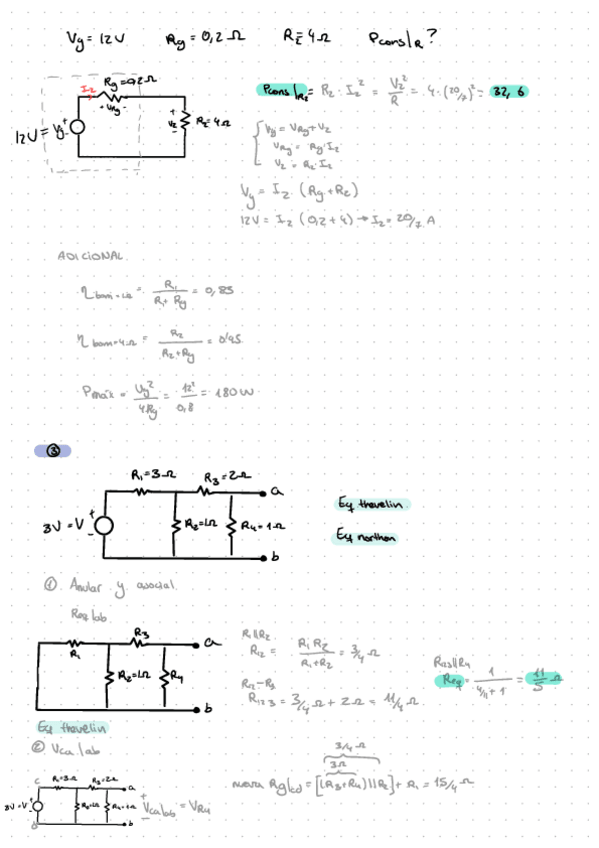 Vg = 12V Rg = 0,2 Ω R2 = 4Ω Pcons|R ?
Rg = 0,2Ω
I2
+ VRg -
12V = Vg
+
-
+
V2
-
R2 = 4Ω
Pcons|R2 = R2 · I2² = V2²/R = 4 · (20/7)² = 32,6
Vg = VRg + V2
VRg = Rg · I2
V2 = R2 · I2
Vg = I2 · (Rg + R2)
12V = I2 (0,2 + 4) → I2 = 20/7 A
ADICIONAL
R1/(R1 + Rg) = 0,83
R2/(R2 + Rg) = 0,95
Pmáx = Vg²/4Rg = 12²/0,8 = 180 W
3
R1 = 3Ω R3 = 2Ω
a
3V = V
+
-
R2 = 1Ω R4 = 1Ω
b
Eq thevelin
Eq northon
① Anular y asociar
Req|ab
R3
a
R1
R2 = 1Ω R4
b
R1||R2
R12 = R1 R2/(R1 + R2) = 3/4 Ω
R12 - R3
R123 = 3/4 Ω + 2Ω = 11/4 Ω
R123||R4
Req = 1/(4/11 + 1) = 11/15 Ω
Eq thevelin
② Vca|ab
c R1 = 3Ω R3 = 2Ω a
3V = V
+
-
R2 = 1Ω R4 = 1Ω
d b
+
Vca|ab = VR4
-
3/4 Ω
3Ω
nueva Rg|cd = [(R3 + R4)||R2] + R1 = 15/4 Ω